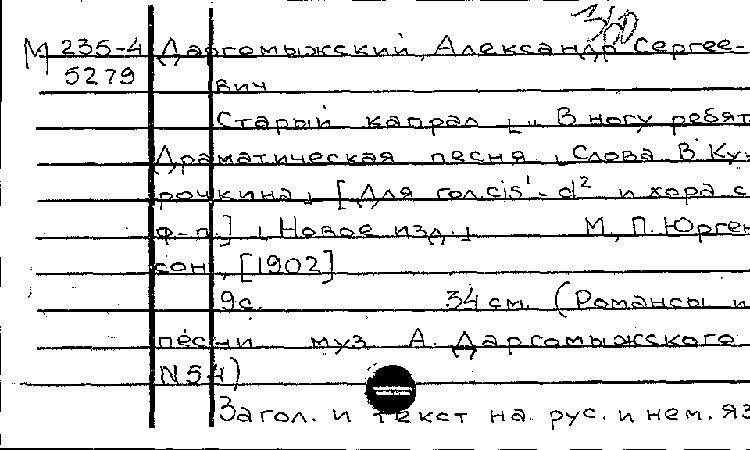 360
М 235-4 Даргомыжский, Александр Сергее-
5279 вич
Старый капрал „В ногу ребят
Драматическая песня. Слова В Ку-
рочкина. [Для гол. cis¹-d² и хора с
ф-п.] Новое изд. М., П. Юрген-
сон, [1902]
9с. 34 см. (Романсы и
песни муз А. Даргомыжского
N54)
Загол. и текст на рус. и нем. яз